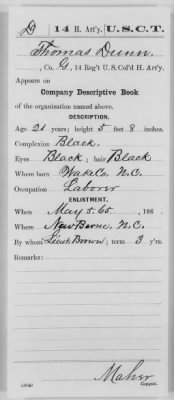 D | 14 H. Art'y. | U.S.C.T.
Thomas Dunn
, Co. G, 14 Reg't U.S. Col'd H. Art'y.
Appears on
Company Descriptive Book
of the organization named above.
DESCRIPTION.
Age 21 years; height 5 feet 8 inches.
Complexion Black.
Eyes Black; hair Black
Where born Wake Co, N.C.
Occupation Laborer
ENLISTMENT.
When May 5. 65, 186 .
Where New Berne, N.C.
By whom Lieut. Brown; term 3 y'rs.
Remarks:
Maher
Copyist.